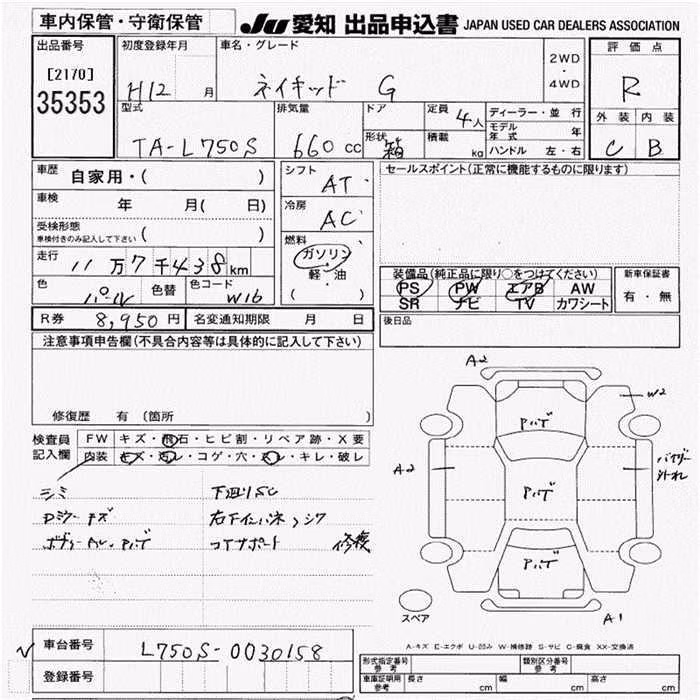 車内保管・守衛保管 JU 愛知 出品申込書 JAPAN USED CAR DEALERS ASSOCIATION
出品番号 初度登録年月 車名・グレード 2WD・4WD 評価点
[2170] H12 月 ネイキッド G R
35353 型式 排気量 ドア 定員 4人 ディーラー・並行 外装 内装
TA-L750S 660 CC 形状 箱 積載 kg モデル年式 年 C B
ハンドル 左・右
車歴 自家用・( ) シフト AT セールスポイント(正常に機能するものに限ります)
車検 年 月( 日) 冷房 AC
受検形態 車検付きのみ記入して下さい ( )
燃料 ガソリン 軽・油 ( )
走行 11万7千438km 装備品(純正品に限り○をつけてください) 新車保証書
色 パール 色替 色コード W16 PS PW エアB AW 有・無
SR ナビ TV カワシート
R券 8,950円 名変通知期限 月 日 後日品
注意事項申告欄(不具合内容等は具体的に記入して下さい)
修復歴 有 (箇所 )
A2
W2
Aハゲ
検査員 FW キズ・飛石・ヒビ割・リペア跡・X要
記入欄 内装 キズ・汚レ・コゲ・穴・スレ・キレ・破レ
A2 Aハゲ バイザー外れ
シミ 下廻りSC
Dミラーキズ 右下インパネ、シワ
コアサポート 修複
Aハゲ
スペア A1
A-キズ E-エクボ U-凹み W-補修跡 S-サビ C-腐食 XX-交換済
車台番号 L750S-0030158
登録番号
形式指定番号 参考 類別区分番号 参考
車庫証明用 参考 長さ cm 幅 cm 高さ cm